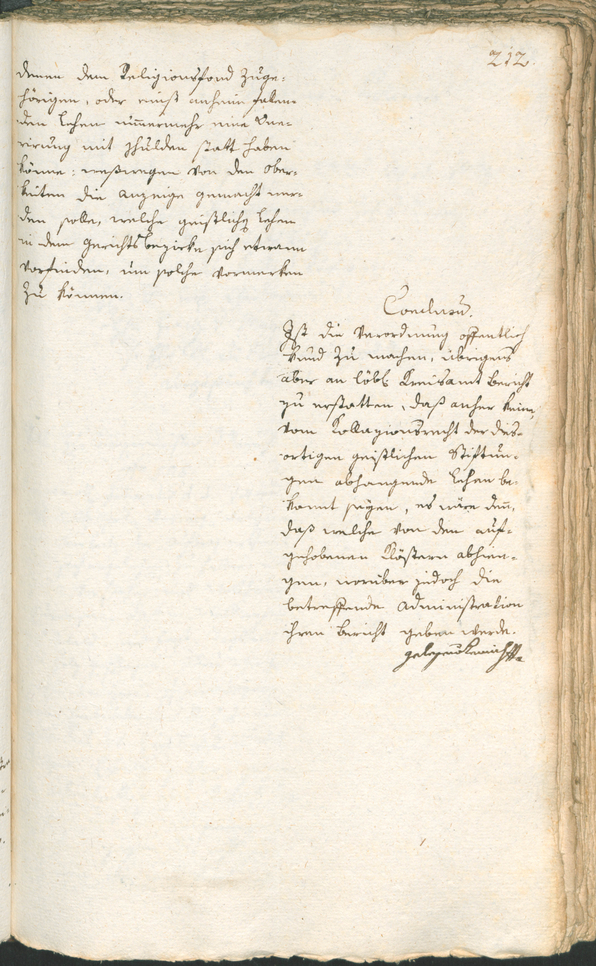 212.
denen dem Religionsfond Zuge-
hörigen, oder sonst anheim fallen-
den Lehen nimmermehr eine One-
rirung mit Schulden statt haben
könne: weßwegen von den Ober-
keiten die Anzeige gemacht wer-
den solle, welche geistliche Lehen
in dem Gerichtsbezirke sich etwann
vorfinden, um solche vormerken
zu können.
Conclusum.
Ist die Verordnung öffentlich
kund zu machen, übrigens
aber an löbl. Kreisamt Bericht
zu erstatten, daß anher keine
vom Collazionsrecht der dies-
ortigen geistlichen Stiftun-
gen abhangende Lehen be-
kannt seyen, es wäre denn,
daß welche von den auf-
gehobenen Klöstern abhien-
gen, worüber jedoch die
betreffende Administration
ihren Bericht geben werde.